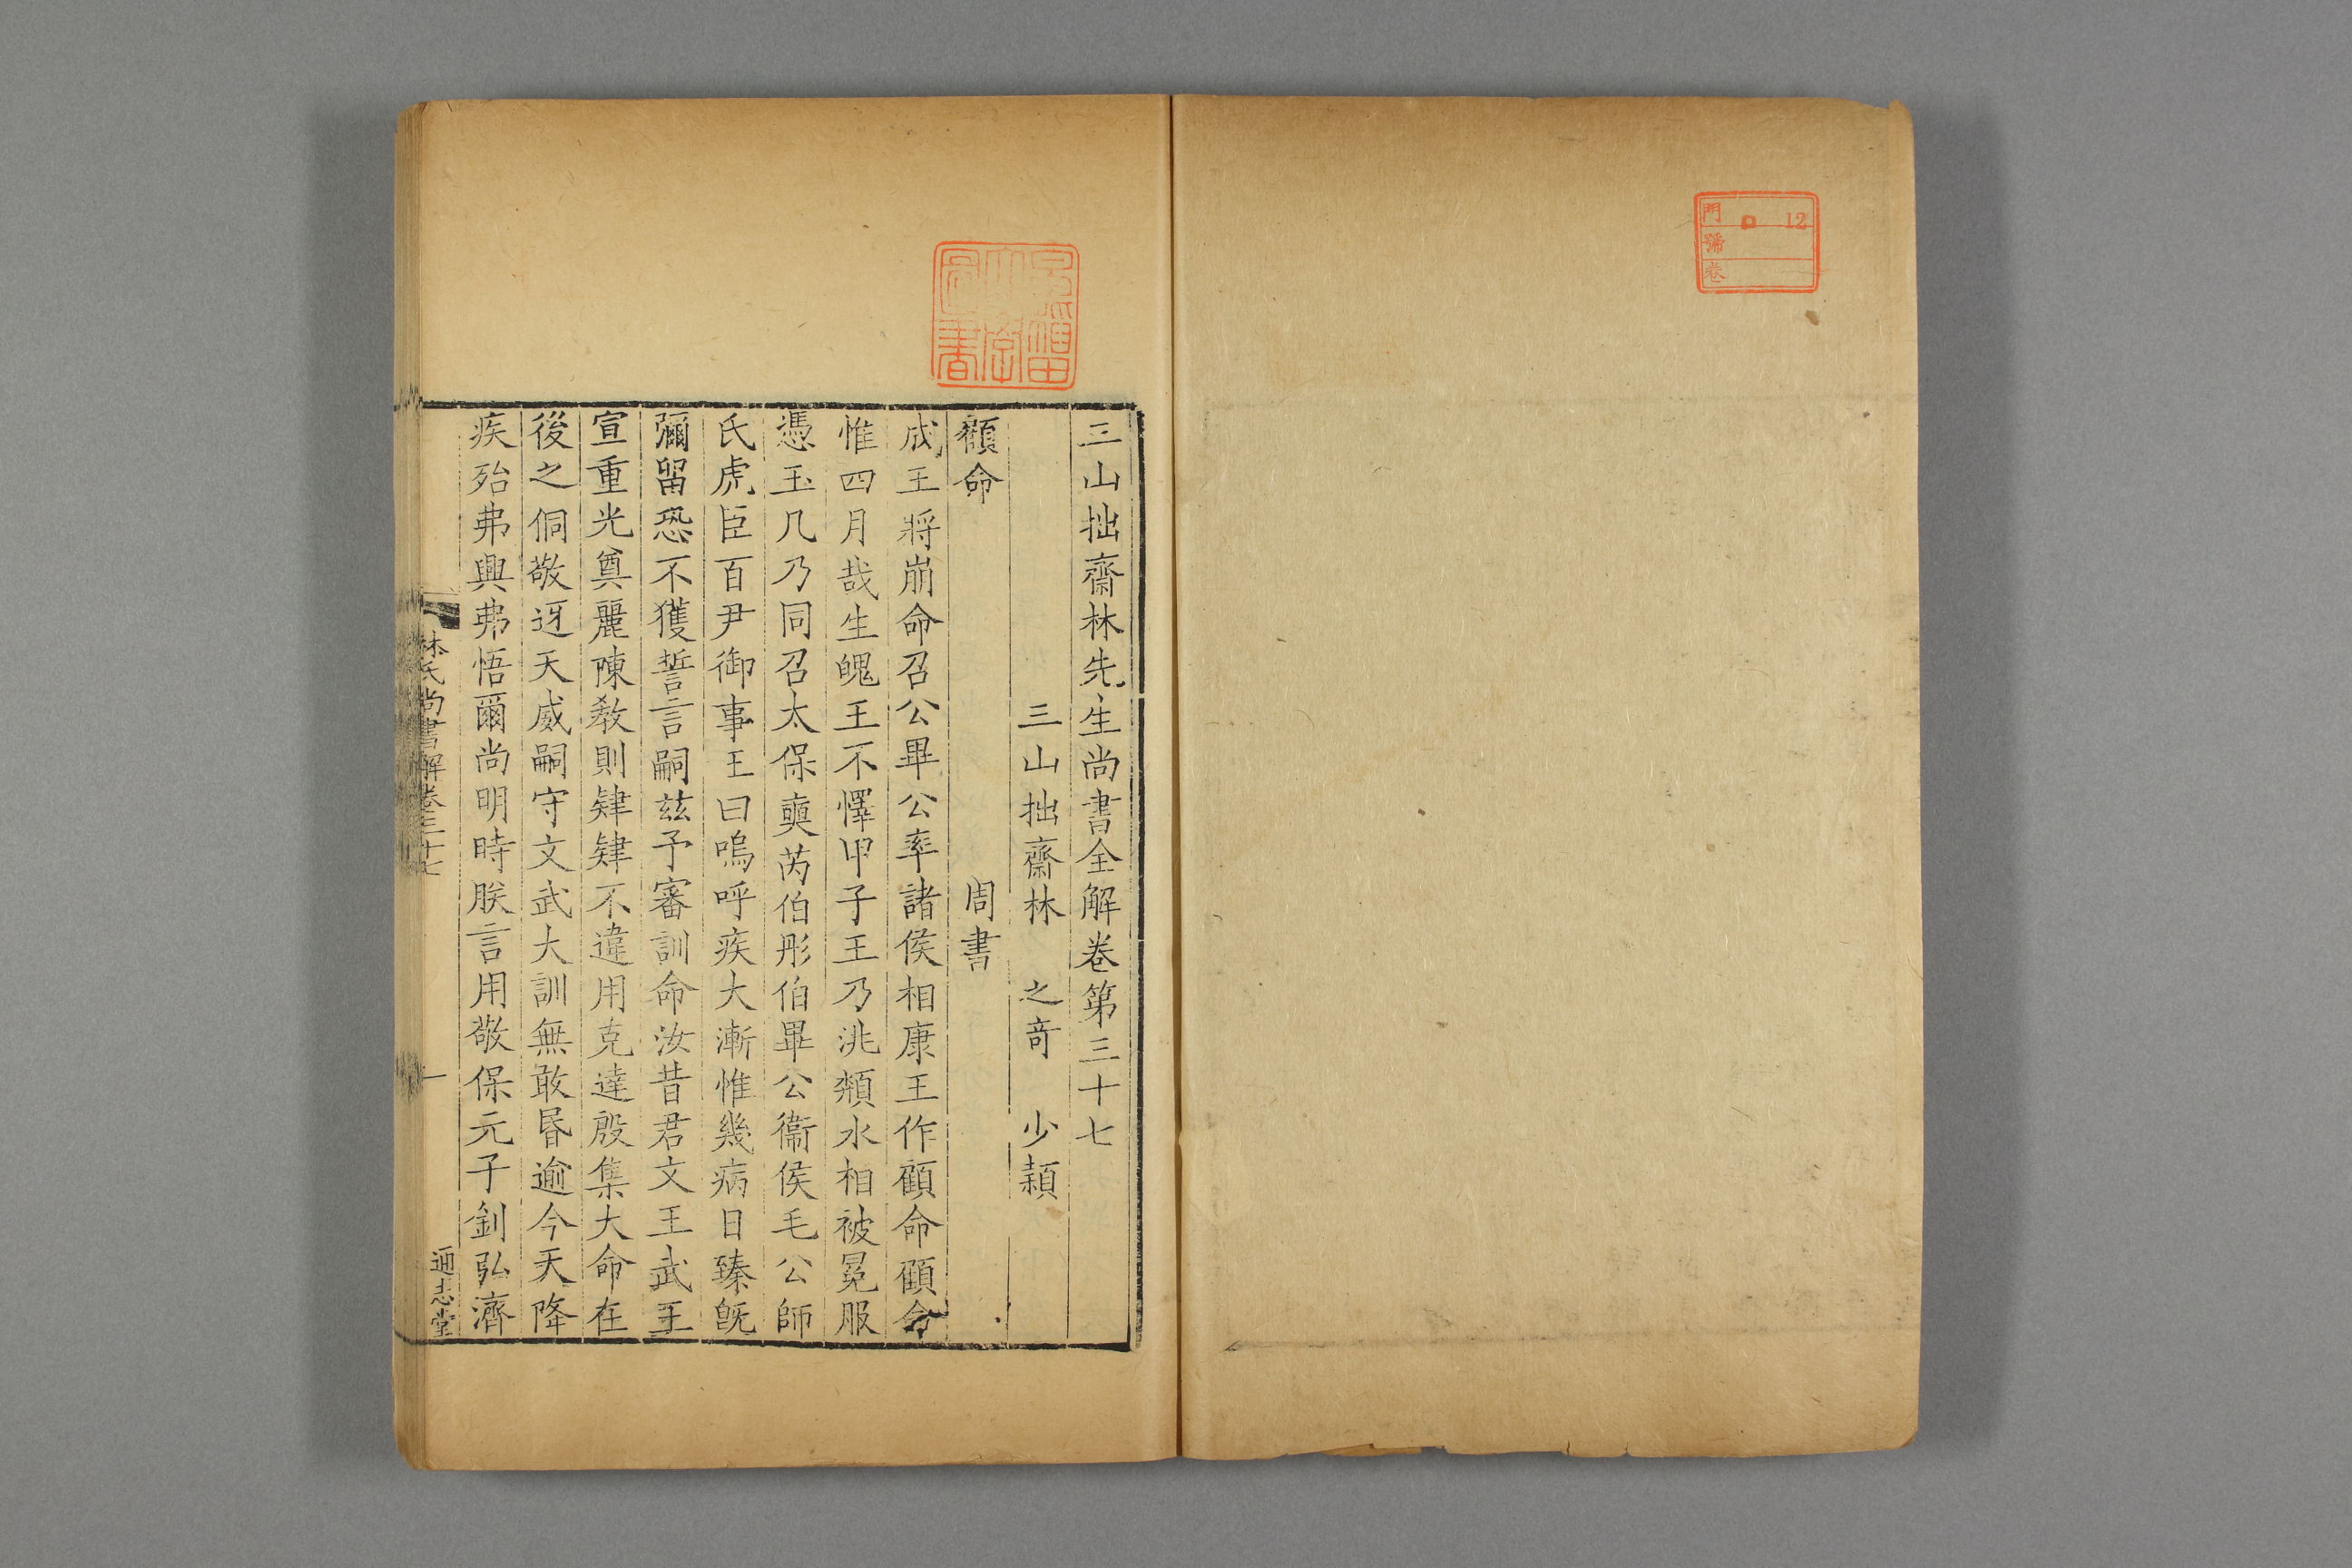 門 12
號
卷
早稻田大學圖書
三山拙齋林先生尚書全解卷第三十七
三山拙齋林 之奇 少穎
顧命 周書
成王將崩命召公畢公率諸侯相康王作顧命顧命
惟四月哉生魄王不懌甲子王乃洮頮水相被冕服
憑玉几乃同召太保奭芮伯彤伯畢公衞侯毛公師
氏虎臣百尹御事王曰嗚呼疾大漸惟幾病日臻旣
彌留恐不獲誓言嗣兹予審訓命汝昔君文王武王
宣重光奠麗陳敎則肄肄不違用克達殷集大命在
後之侗敬迓天威嗣守文武大訓無敢昬逾今天降
疾殆弗興弗悟爾尚明時朕言用敬保元子釗弘濟
林氏尚書解卷三十七
一
通志堂